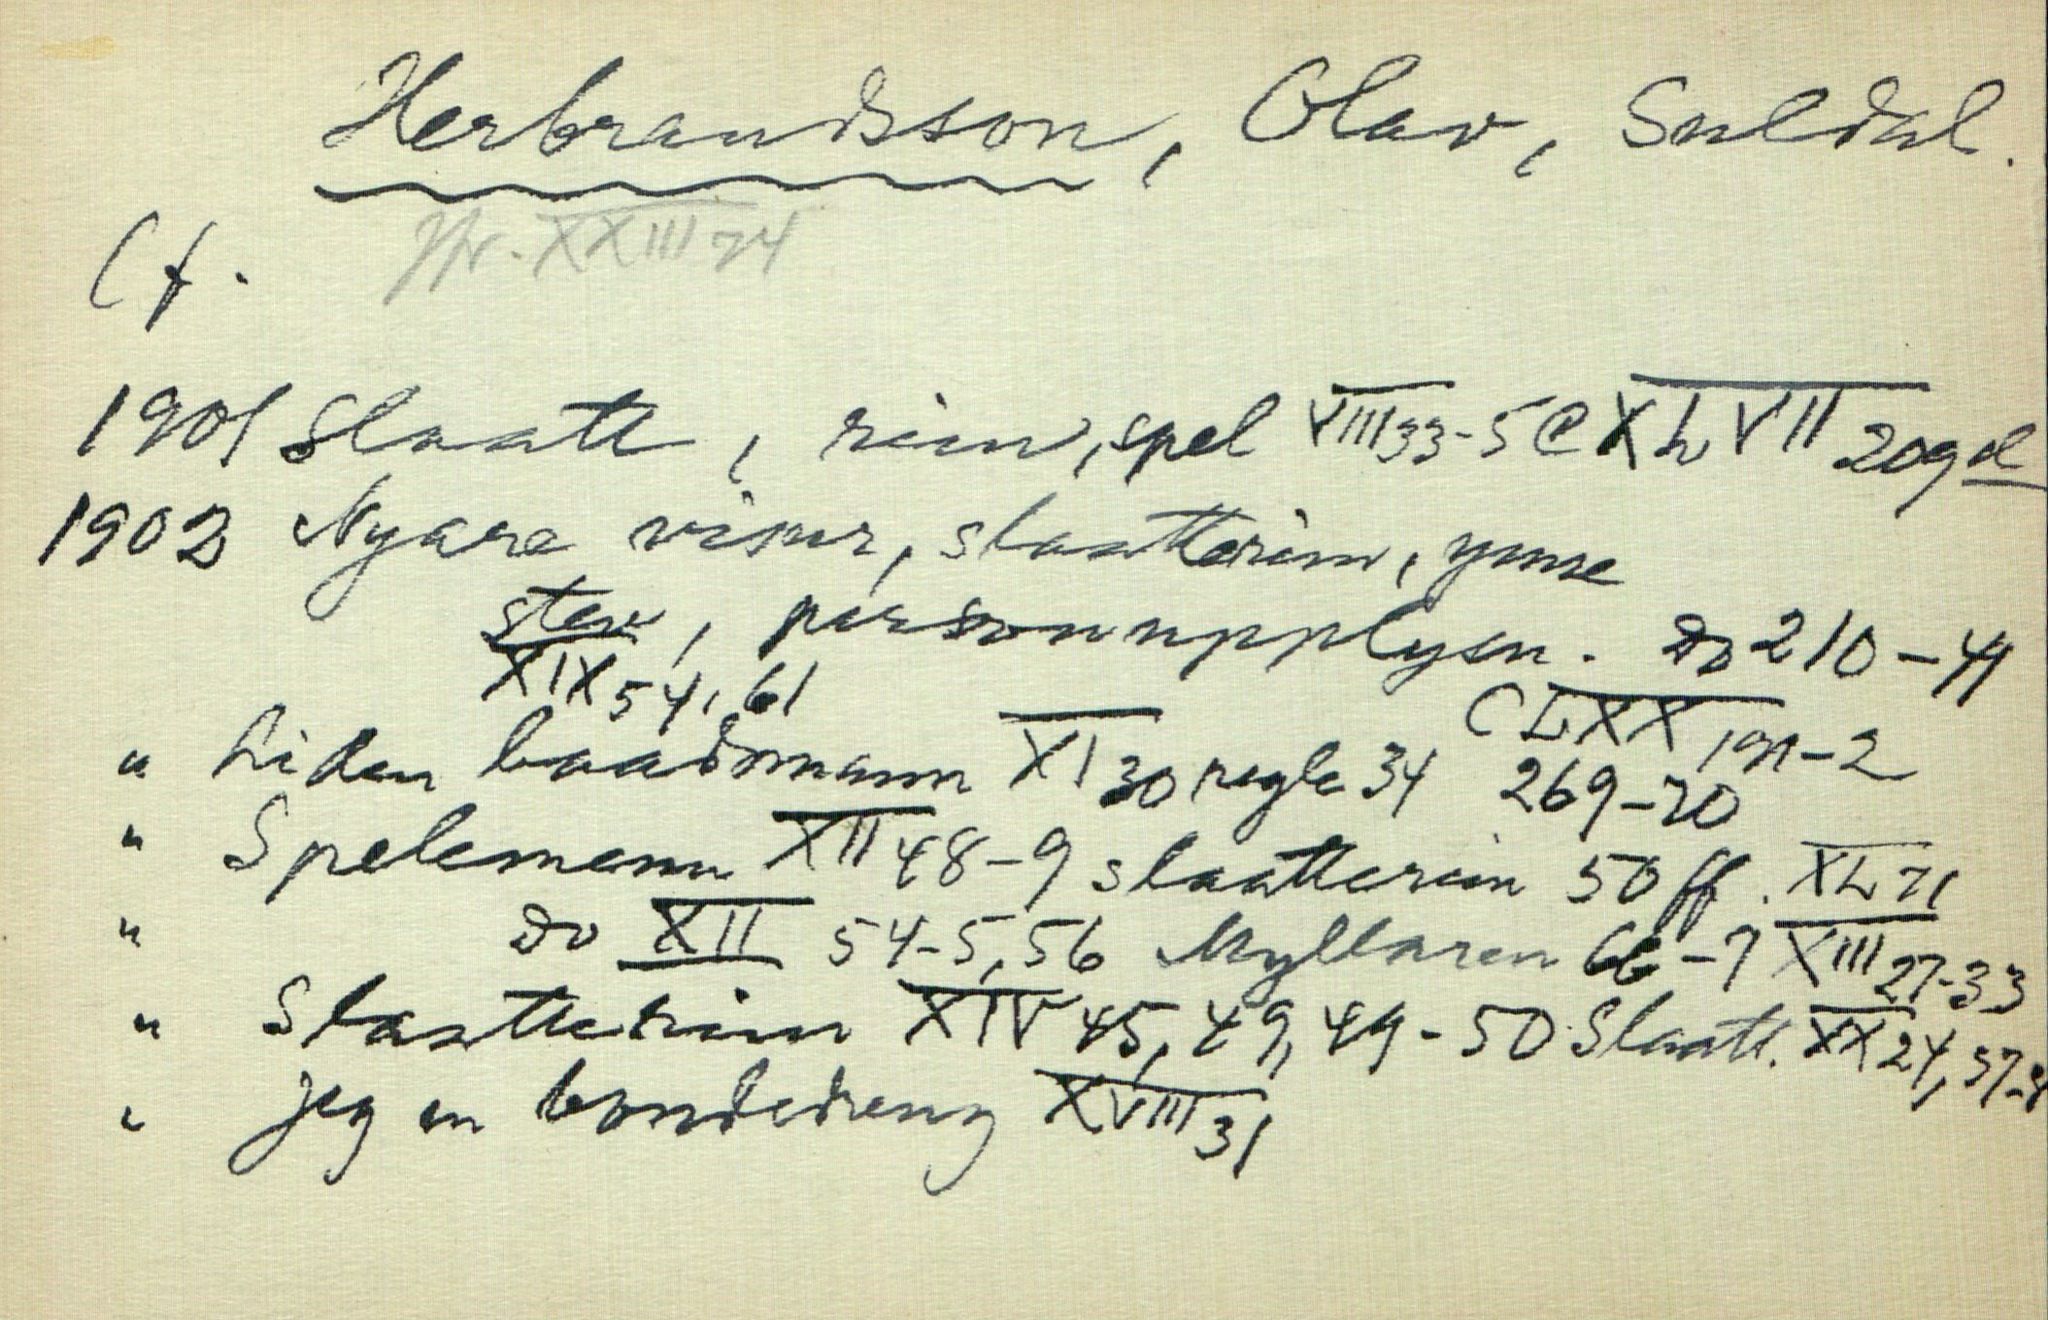 Herbrandsson, Olav, Suldal.
Cf. Jfr. XXIII 74
1901 Slaatt, rim, spel VIII 33-5 XLVII 209
1902 Nyare visur, slaatterim, ymse
stev, personupplysn. Do 210-41
XIX 54, 61 CLXX 191-2
" Liden baadsmann XI 30 regle 34 269-70
" Spelemann XII 48-9 slaatterim 50 ff. XL 71
" Do XII 54-5, 56 Myllaren 66-7 XIII 27-33
" Slaatterim XIV 45, 49, 49-50 Slaatt. XX 24, 57-8
" Jeg en bondedreng XVIII 31